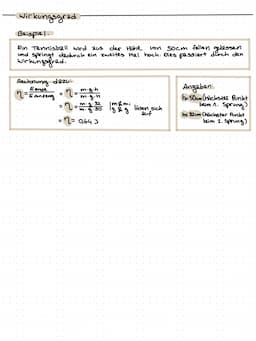 Wirkungsgrad
Beispiel:
Ein Tennisball wird aus der Höhe von 50cm fallen gelassen
und springt dadurch ein zweites Mal hoch. Dies passiert durch den
Wirkungsgrad.
Rechnung dazu:
η = E ende / E anfang = η = m·g·h / m·g·h
= η = m·g·32 / m·g·50 | m & m g & g lösen sich auf
= η = 0,64
Angaben:
h= 50cm (Höchster Punkt
beim 1. Sprung)
h= 32cm (Höchster Punkt
beim 2. Sprung)